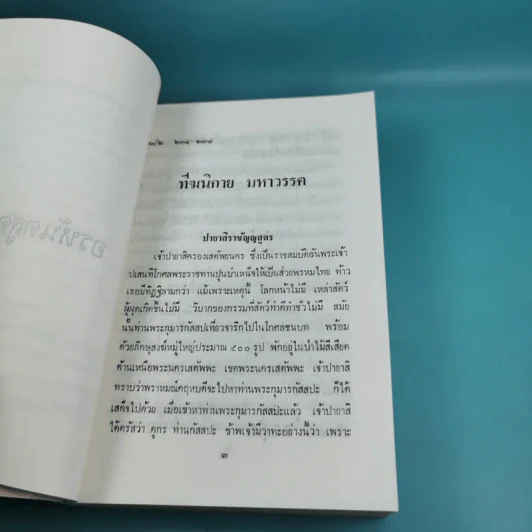 ๑๐/๒ ๒๓๔-๒๗๘
ทีฆนิกาย มหาวรรค
ปายาสิราชัญญสูตร
เจ้าปายาสิครองเสตัพยนคร ซึ่งเป็นราชสมบัติอันพระเจ้า
ปเสนทิโกศลพระราชทานปูนบำเหน็จให้เป็นส่วยพรหมไทย ท้าว
เธอมีทิฏฐิลามกว่า แม้เพราะเหตุนี้ โลกหน้าไม่มี เหล่าสัตว์
ผู้ผุดเกิดขึ้นไม่มี วิบากของกรรมที่สัตว์ทำดีทำชั่วไม่มี สมัย
นั้นท่านพระกุมารกัสสปเที่ยวจาริกไปในโกศลชนบท พร้อม
ด้วยภิกษุสงฆ์หมู่ใหญ่ประมาณ ๕๐๐ รูป พักอยู่ในป่าไม้สีเสียด
ด้านเหนือพระนครเสตัพพะ เขตพระนครเสตัพพะ เจ้าปายาสิ
ทราบว่าพราหมณ์คฤหบดีจะไปหาท่านพระกุมารกัสสปะ ก็ได้
เสด็จไปด้วย เมื่อเข้าหาท่านพระกุมารกัสสปะแล้ว เจ้าปายาสิ
ได้ตรัสว่า ดูกร ท่านกัสสปะ ข้าพเจ้ามีวาทะอย่างนี้ว่า เพราะ
๓